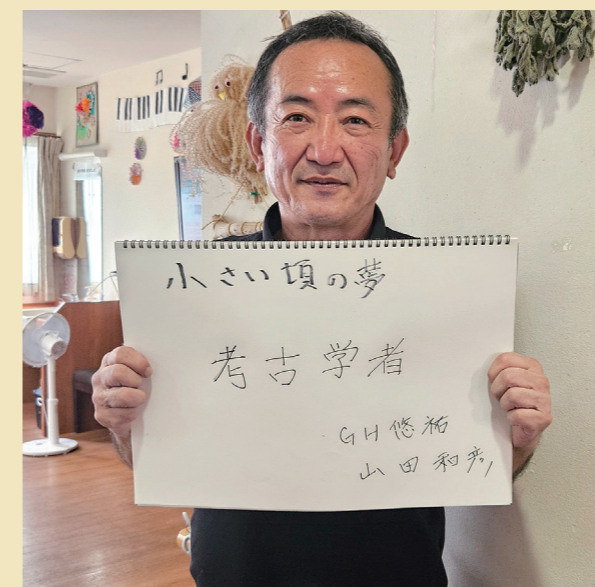 小さい頃の夢
考古学者
GH悠祐
山田和彦